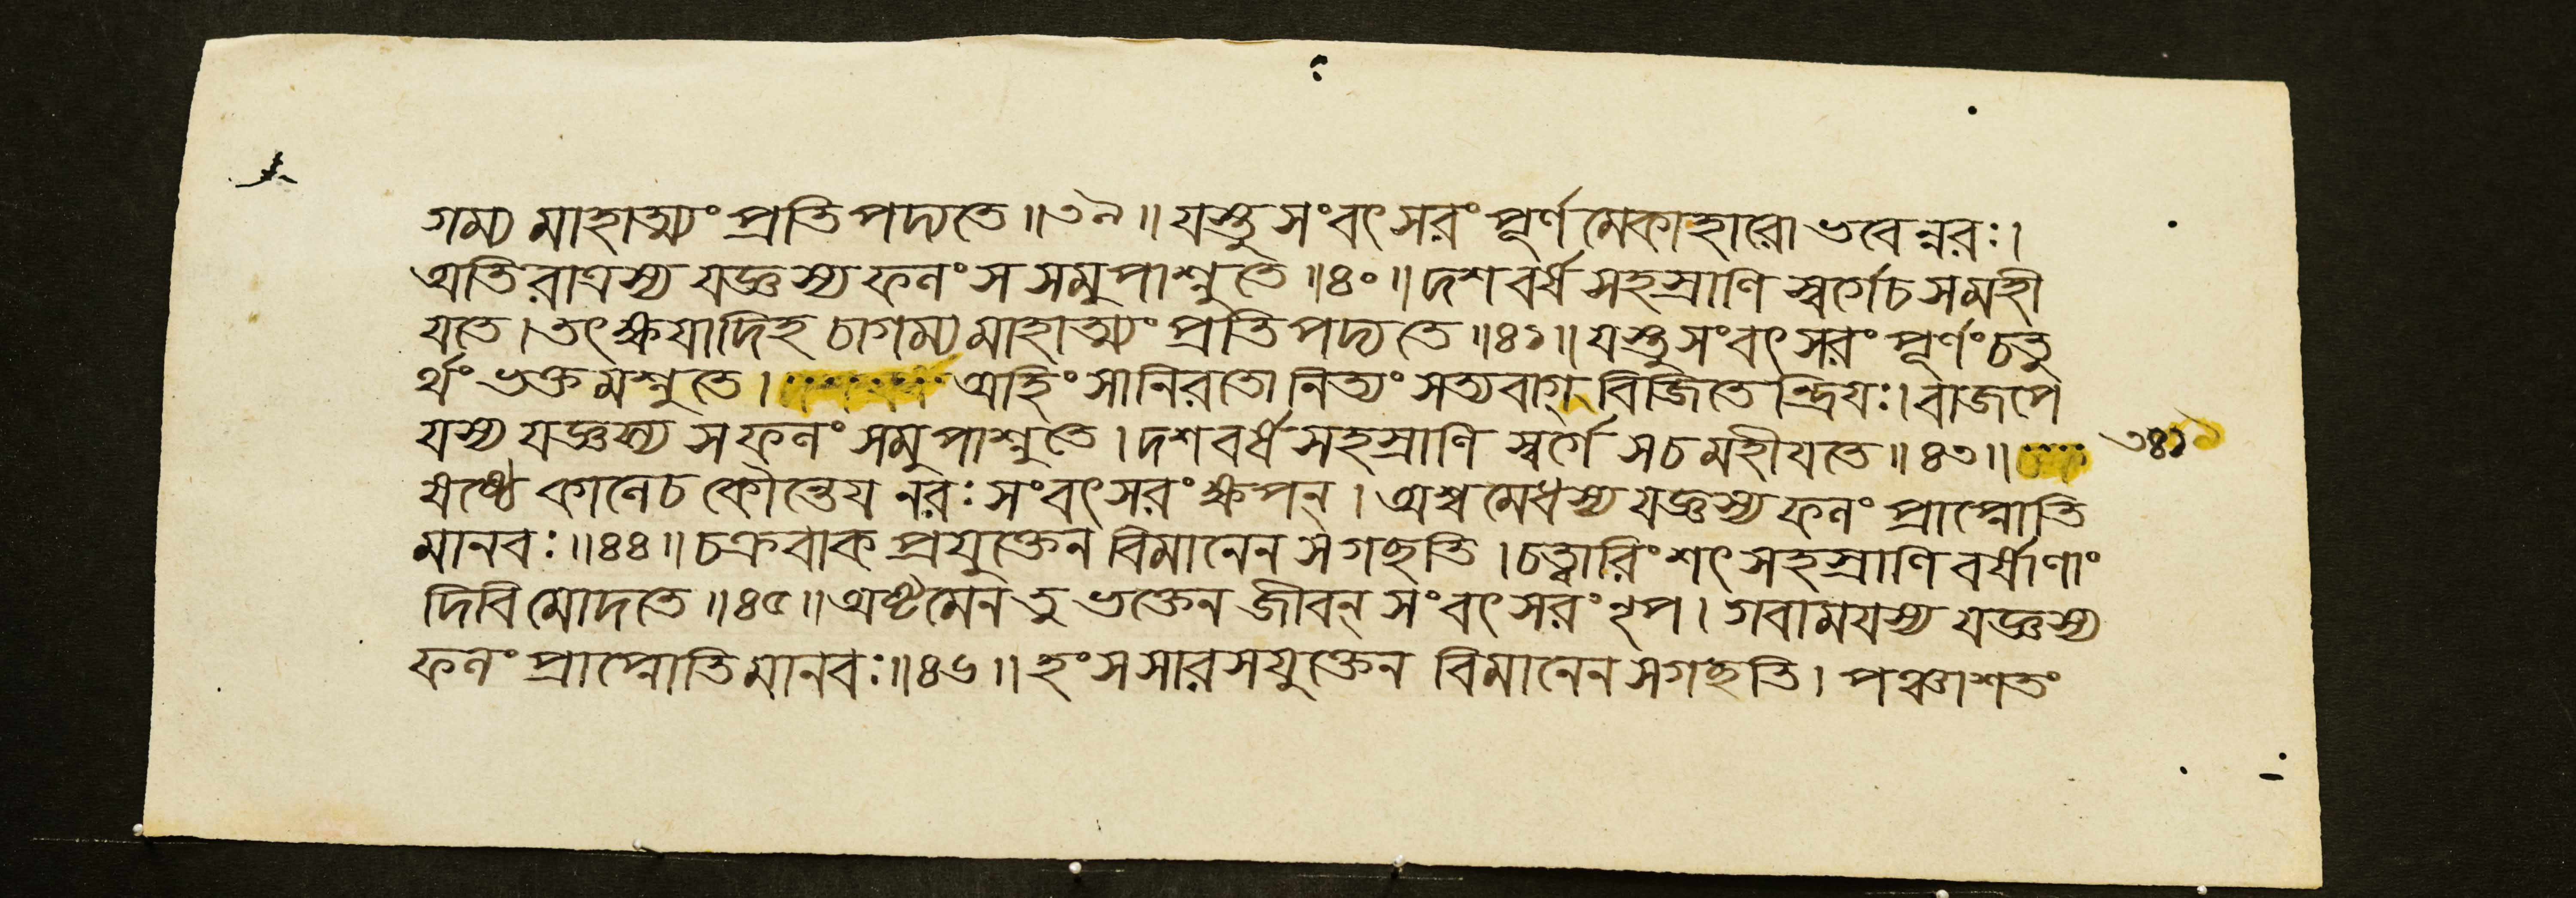 গম্য মাহাত্ম্যং প্রতিপদ্যতে ॥৩৯॥ যস্তু সংবৎসরং পূর্ণমেকাহারো ভবেন্নরঃ।
অতিরাত্রস্য যজ্ঞস্য ফলং স সমুপাশ্নুতে ॥৪০॥ দশবর্ষসহস্রাণি স্বর্গে চ সমহী
যতে। তৎক্ষয়াদিহ চাগম্য মাহাত্ম্যং প্রতিপদ্যতে ॥৪১॥ যস্তু সংবৎসরং পূর্ণং চতু
র্থং ভক্তমশ্নুতে। অহিংসানিরতো নিত্যং সত্যবাগ্ বিজিতেন্দ্রিয়ঃ। বাজপে
যস্য যজ্ঞস্য স ফলং সমুপাশ্নুতে। দশবর্ষসহস্রাণি স্বর্গে স চ মহীয়তে ॥৪৩॥
ষষ্ঠে কালে চ কৌন্তেয় নরঃ সংবৎসরং ক্ষপন্। অশ্বমেধস্য যজ্ঞস্য ফলং প্রাপ্নোতি
মানবঃ ॥৪৪॥ চক্রবাকপ্রযুক্তেন বিমানেন স গচ্ছতি। চত্বারিংশৎসহস্রাণি বর্ষাণাং
দিবি মোদতে ॥৪৫॥ অষ্টমেন তু ভক্তেন জীবন্ সংবৎসরং নৃপ। গবাময়স্য যজ্ঞস্য
ফলং প্রাপ্নোতি মানবঃ ॥৪৬॥ হংসসারসযুক্তেন বিমানেন স গচ্ছতি। পঞ্চাশতং